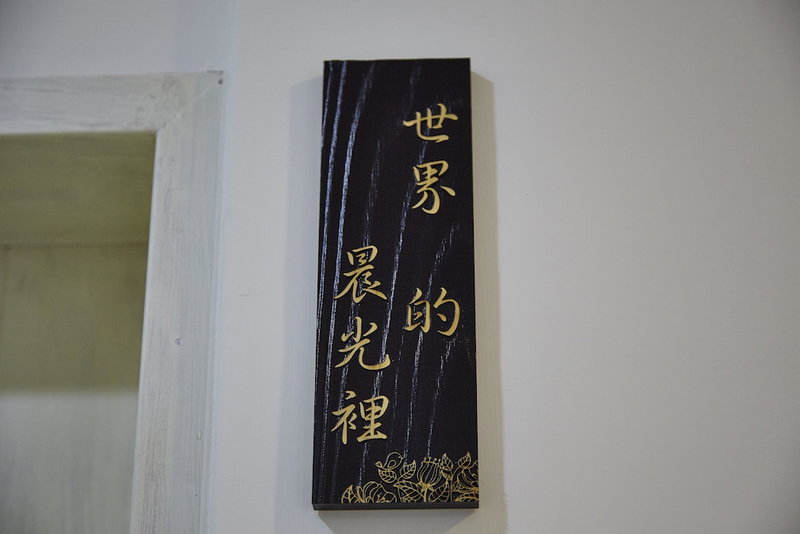 世界的
晨光裡